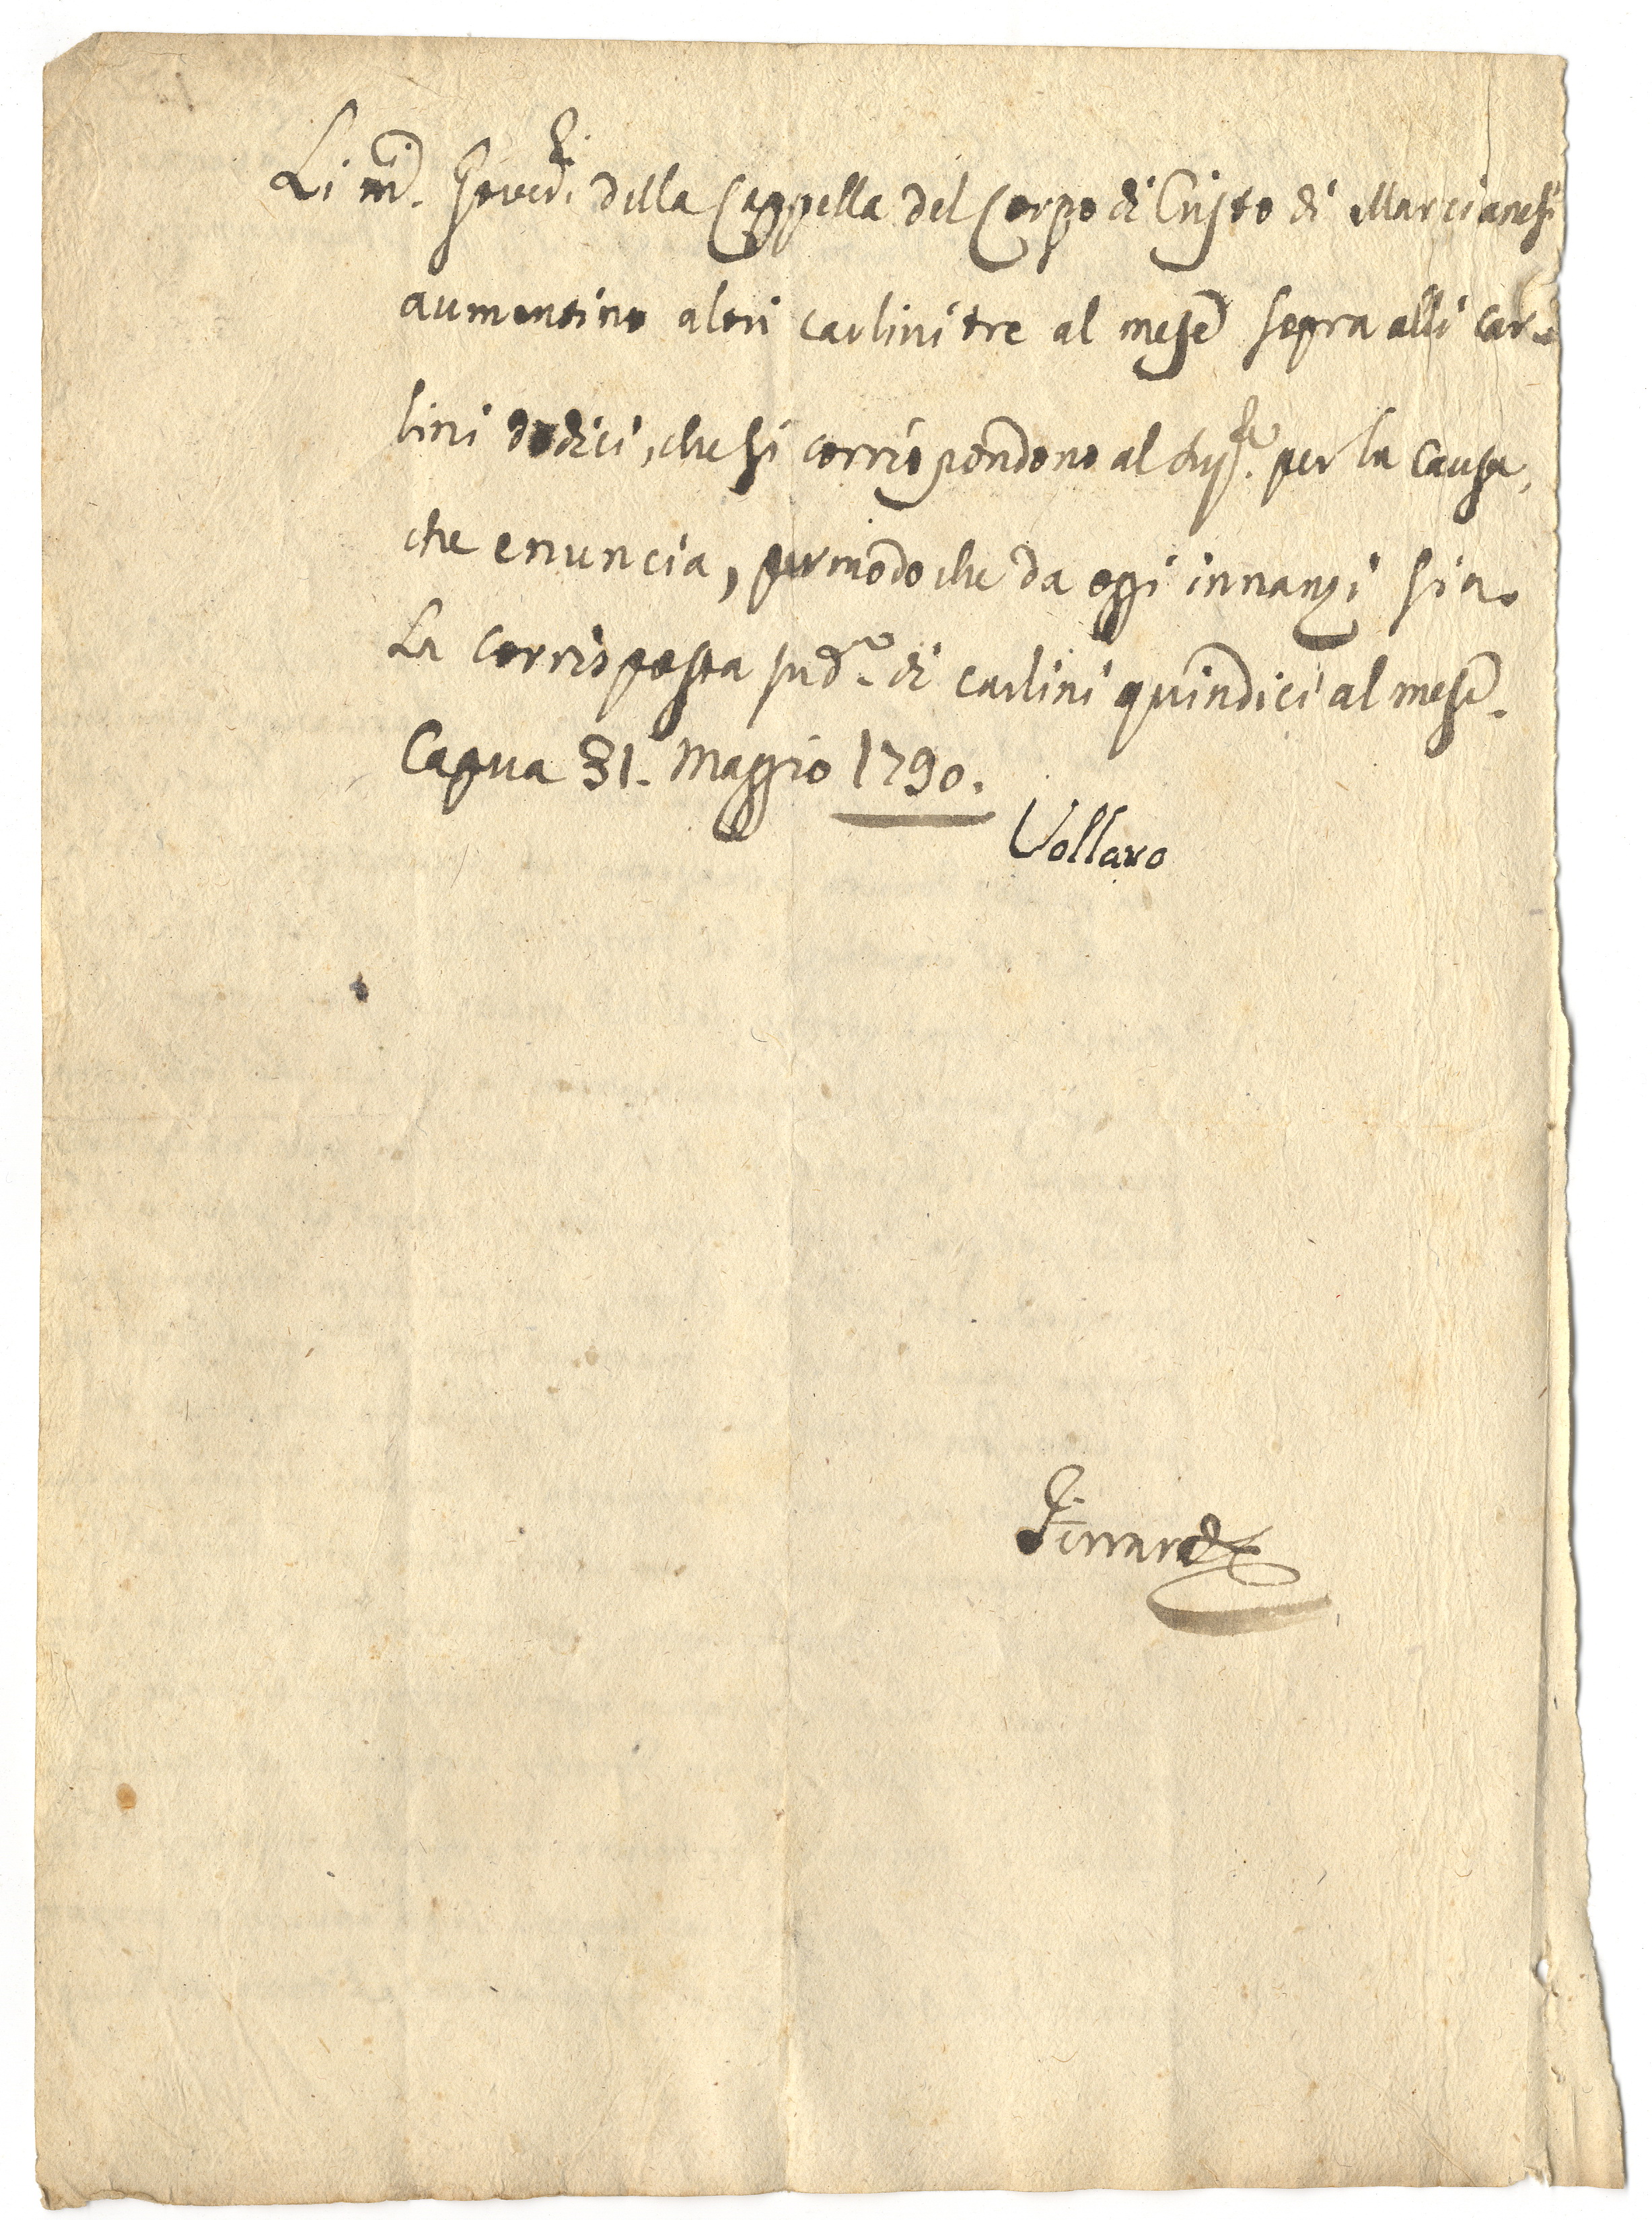 Li m.ci Gover.ri della Cappella del Corpo di Cristo di Marcianesi
aumentino altri carlini tre al mese sopra alli car-
lini dodici, che si corrispondono al per la causa,
che enuncia, per modo che da oggi innanzi sia
La corrisposta sud.a di carlini quindici al mese.
Capua 31. Maggio 1790.
Vollaro